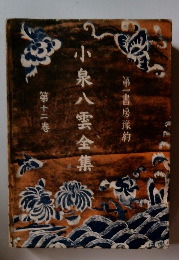 第一書房豫約
小泉八雲全集
第十二卷